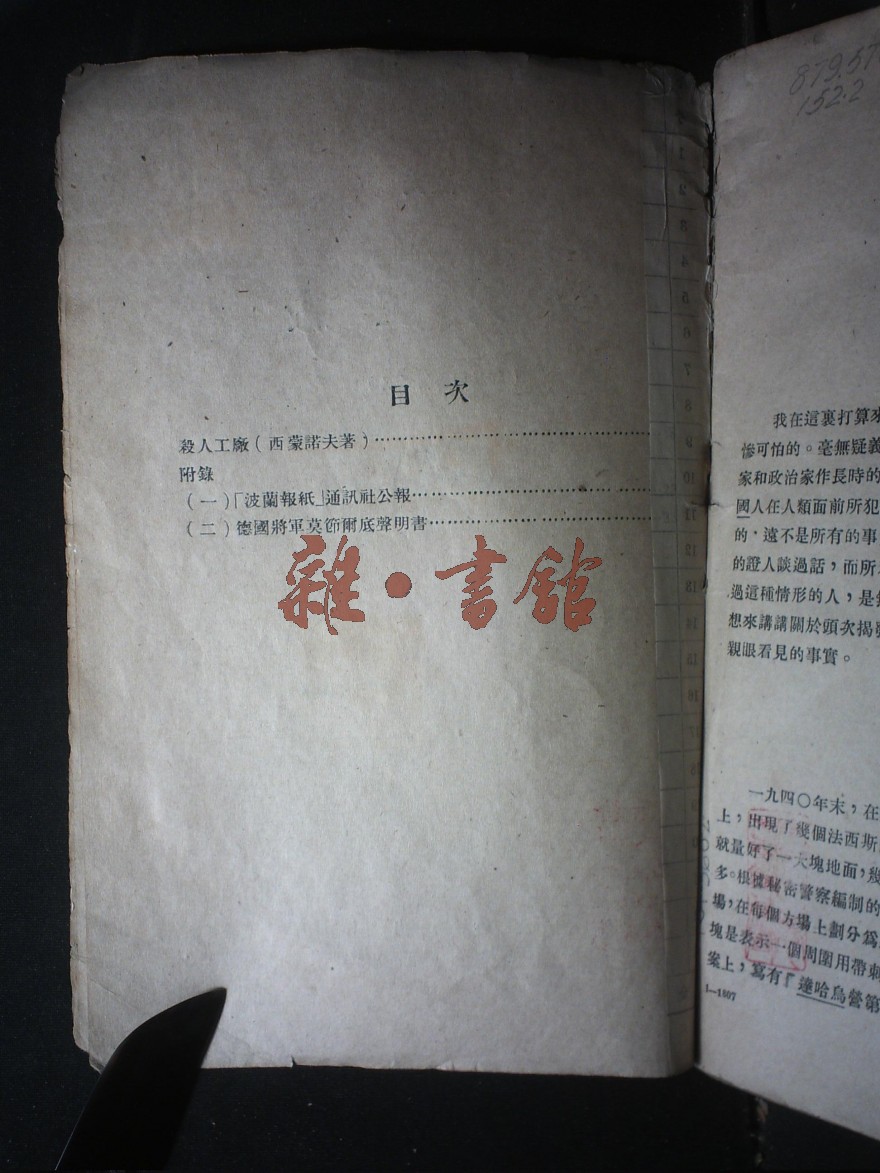 目 次
殺人工廠(西蒙諾夫著)
附錄
(一)「波蘭報紙」通訊社公報
(二)德國將軍莫節爾底聲明書
雜·書舘
879.57
152.2
我在這裏打算來
慘可怕的。毫無疑義
家和政治家作長時的
國人在人類面前所犯
的,遠不是所有的事
的證人談過話,而所
過這種情形的人,是
想來講講關於頭次揭
親眼看見的事實。
一九四〇年末,在
上,出現了幾個法西斯
就量好了一大塊地面,幾
多。根據秘密警察編制的
場,在每個方場上劃分爲
塊是表示一個周圍用帶刺
案上,寫有『達哈烏營第
1—1807